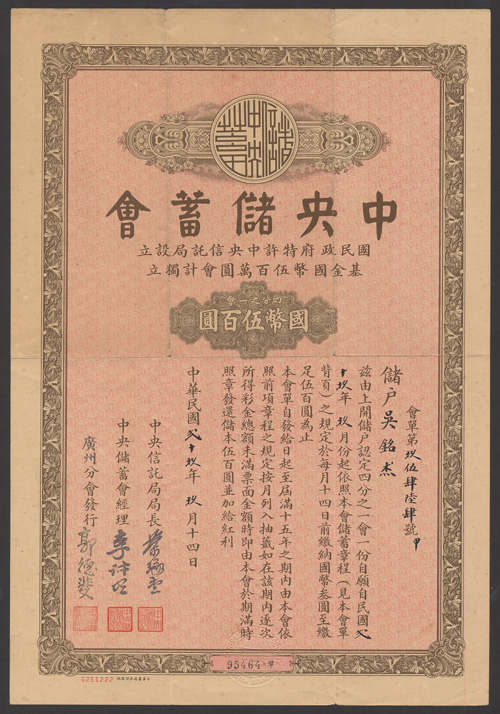 中央儲蓄會
國民政府特許中央信託局設立
基金國幣伍百萬圓會計獨立
四分之一會
國幣伍百圓
會單第玖伍肆陸肆號甲
儲戶吳銘杰
該由上開儲戶認定四分之一會一份自願自民國弍
十玖年玖月份起依照本會儲蓄章程(見本會單
背頁)之規定於每月十四日前繳納國幣叁圓至繳
足伍百圓為止
本會單自發給日起至屆滿十五年之期內由本會依
照前項章程之規定按月列入抽籤如在該期內逐次
所得彩金總額未滿票面金額時即由本會於期滿時
照章發還儲本伍百圓並加給紅利
中華民國弍十玖年玖月十四日
中央信託局局長
中央儲蓄會經理
廣州分會發行
95464 甲
Q251222